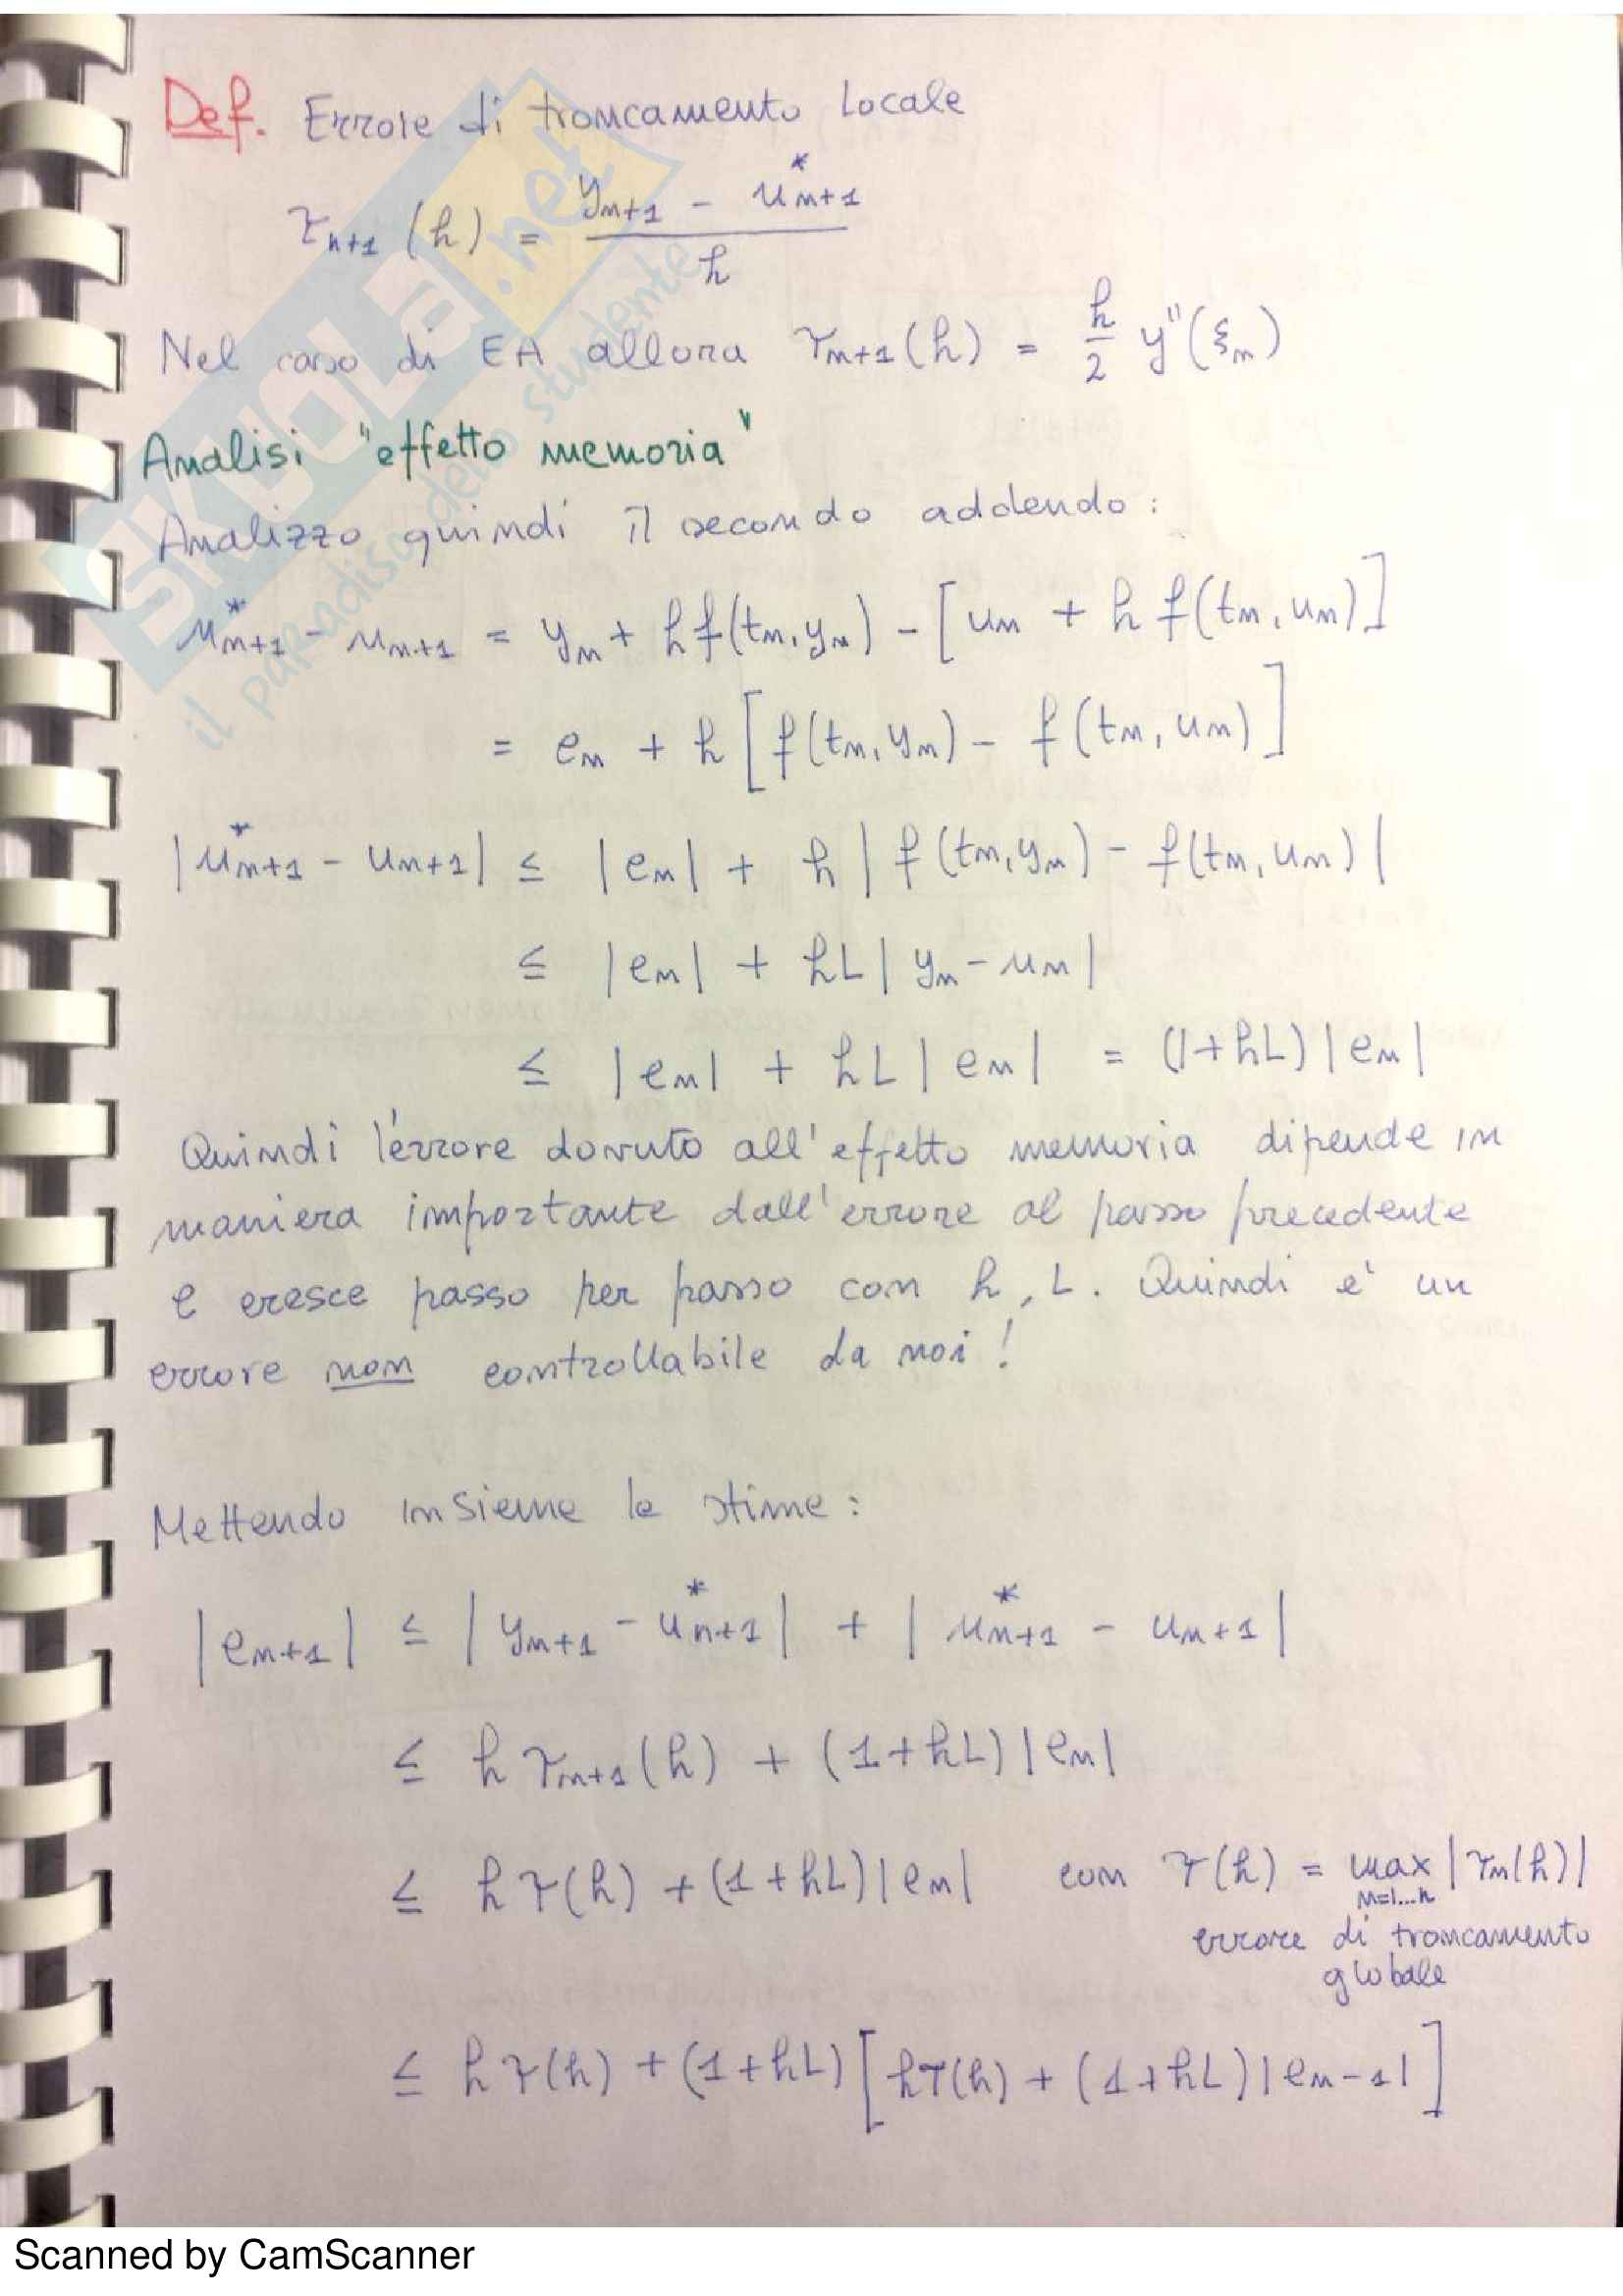 Def. Errore di troncamento locale
τn+1 (h) = (yn+1 - u*n+1) / h
Nel caso di EA allora τn+1(h) = h/2 y''(ξn)
Analisi "effetto memoria"
Analizzo quindi il secondo addendo :
u*n+1 - un+1 = yn + hf(tn, yn) - [un + h f(tn, un)]
= en + h [f(tn, yn) - f(tn, un)]
|u*n+1 - un+1| ≤ |en| + h | f(tn, yn) - f(tn, un) |
≤ |en| + hL | yn - un |
≤ |en| + hL | en | = (1+hL) | en |
Quindi l'errore dovuto all'effetto memoria dipende in
maniera importante dall'errore al passo precedente
e cresce passo per passo con h, L. Quindi e' un
errore non controllabile da noi !
Mettendo insieme le stime :
|en+1| ≤ | yn+1 - u*n+1 | + | u*n+1 - un+1 |
≤ h τn+1(h) + (1+hL) | en |
≤ h τ(h) + (1+hL) | en | con τ(h) = max | τn(h) |
n=1...n
errore di troncamento
globale
≤ h τ(h) + (1+hL) [hτ(h) + (1+hL) | en-1 |]
SKUOLA.net
il paradiso dello studente
Scanned by CamScanner